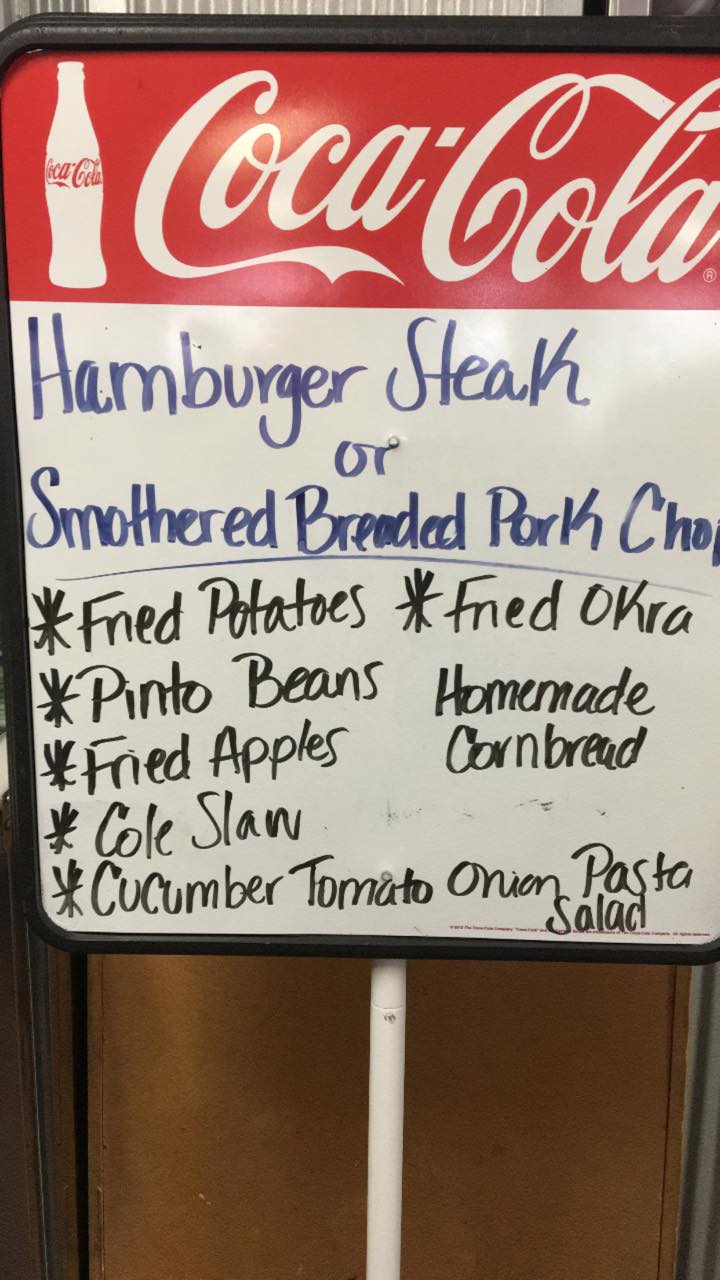 Coca-Cola
Coca-Cola®
Hamburger Steak
or
Smothered Breaded Pork Cho
*Fried Potatoes *Fried Okra
*Pinto Beans Homemade
*Fried Apples Cornbread
* Cole Slaw
*Cucumber Tomato Onion Pasta
Salad